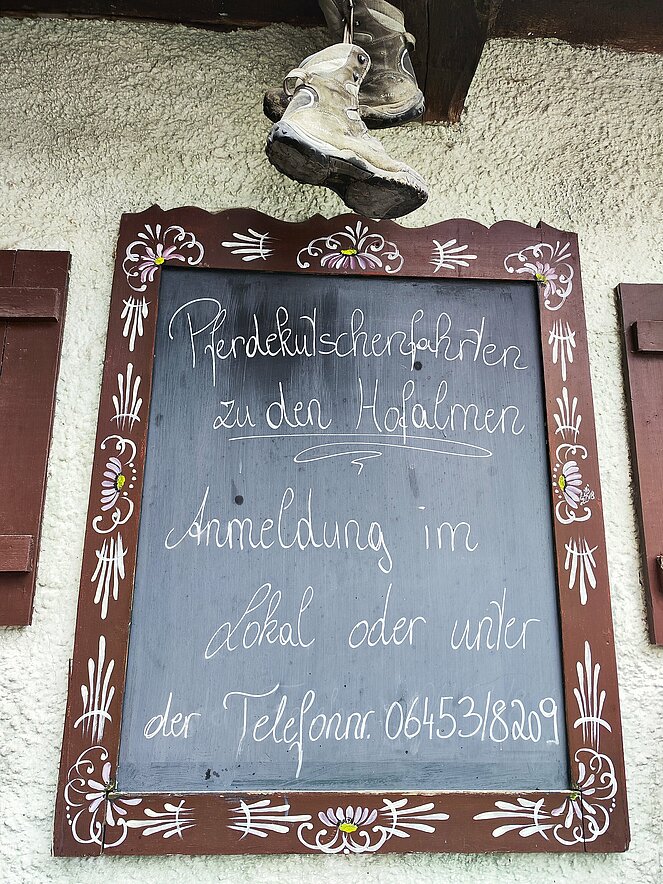 Pferdekutschenfahrten
zu den Hofalmen
Anmeldung im
Lokal oder unter
der Telefonnr. 06453/8209